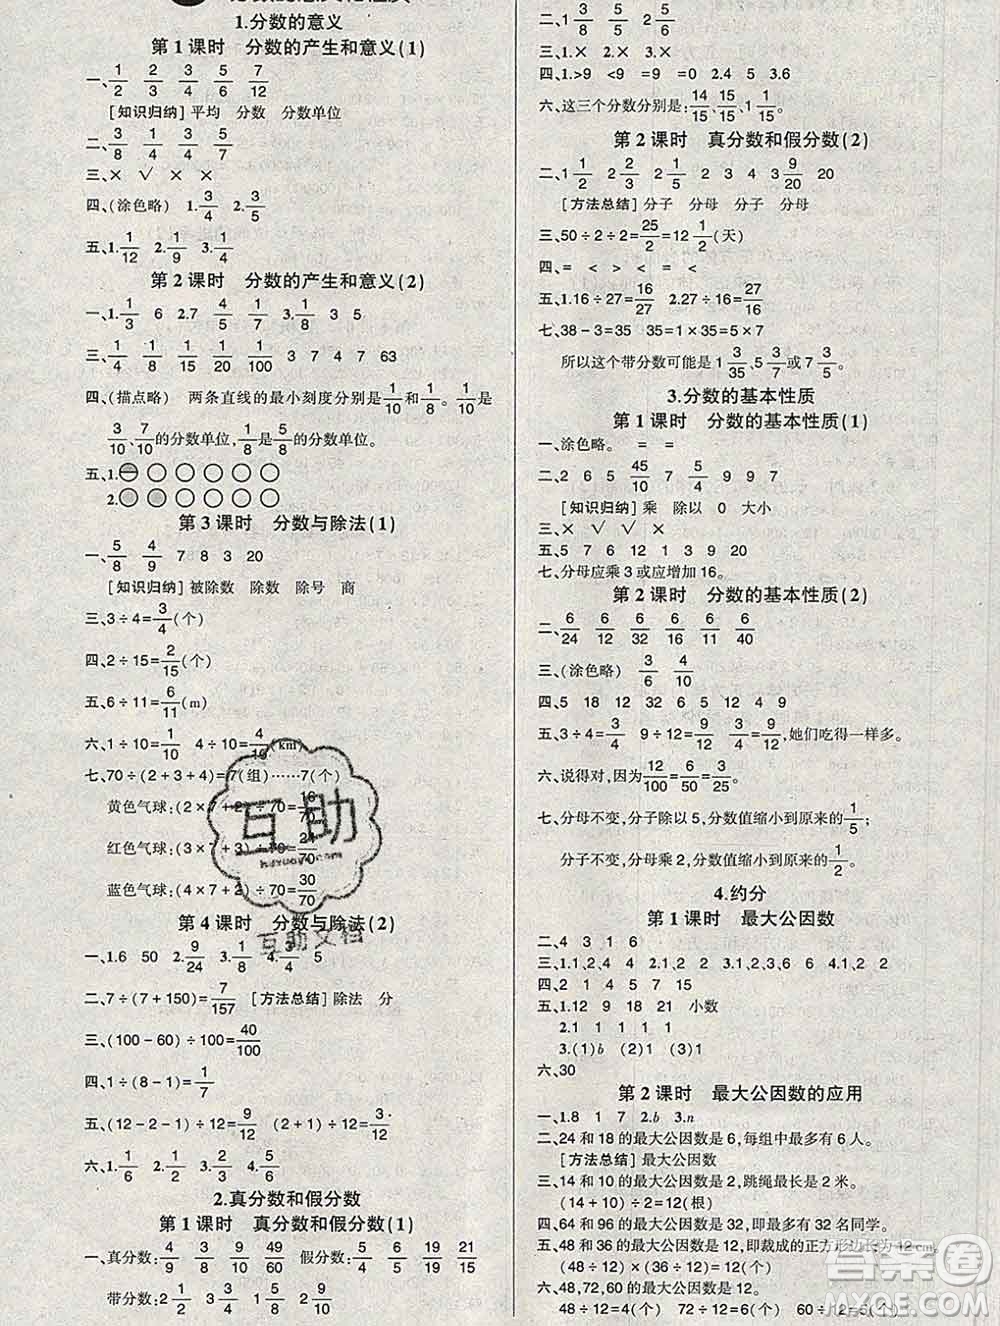 1.分数的意义
第1课时 分数的产生和意义(1)
一、1/2 2/5 3/4 5/6 7/12
[知识归纳]平均 分数 分数单位
二、3/8 1/4 4/9 3/5
三、× √ × ×
四、(涂色略) 1.3/4 2.3/5
五、1.1/12 2.1/7 3.1/4
第2课时 分数的产生和意义(2)
一、1.1/3 6 2.7 4/5 1/9 3.1/8 3 5
三、1/4 1/8 1/15 1/20 1/100 3 7 4 7 63
四、(描点略) 两条直线的最小刻度分别是1/10和1/8。1/10是
3/10、7/10的分数单位,1/8是5/8的分数单位。
五、1.
2.
第3课时 分数与除法(1)
一、5/8 4/9 7 8 3 20
[知识归纳]被除数 除数 除号 商
三、3÷4=3/4(个)
四、2÷15=2/15(个)
五、6÷11=6/11(m)
六、1÷10=1/10 4÷10=4/10(km)
七、70÷(2+3+4)=7(组)……7(个)
黄色气球:(2×7+2)÷70=16/70
红色气球:(3×7+3)÷70=24/70
蓝色气球:(4×7+2)÷70=30/70
第4课时 分数与除法(2)
一、1.6 50 2.9/24 9/29 3.1/4 4.3/4 5
二、7÷(7+150)=7/157 [方法总结]除法 分
三、(100-60)÷100=40/100
四、1÷(8-1)=1/7
五、(12-2-1)÷12=9/12
六、1.1/6 1/2 2.4/9 3.5/6
2.真分数和假分数
第1课时 真分数和假分数(1)
一、真分数:4/9 3/4 8/9 9/10 49/50 假分数:5/5 6/5 19/5 19/4 21/15
带分数:1 1/6 2 1/3 1 3/4 2 3/5
二、1 3/8 2 3/5
三、1.× 2.× 3.×
四、1.>9 <9 =9 =0 2.4 5 3.6
六、这三个分数分别是:14/15、15/15、1 1/15。
第2课时 真分数和假分数(2)
二、1 1/2 2 2/3 2 1/5 2 3 4 3 9/20 20
[方法总结]分子 分母 分子 分母
三、50÷2÷2=25/2=12 1/2(天)
四、= < > < = <
五、1.16÷27=16/27 2.27÷16=27/16
七、38-3=35 35=1×35=5×7
所以这个带分数可能是1 3/35、5 3/7或7 3/5。
3.分数的基本性质
第1课时 分数的基本性质(1)
一、涂色略。 = =
二、2 6 5 45/10 7 5/4 9 9 7
[知识归纳]乘 除以 0 大小
三、× √ √ ×
五、5 7 6 12 1 3 4 9
七、分母应乘3或应增加16。
第2课时 分数的基本性质(2)
二、6/24 6/12 6/16 6/16 6/11 6/40
三、(涂色略) 3/6 4/10
四、5 18 12 32 6 5 12 4 9
五、3÷4=3/4 9÷12=9/12 3/4=9/12,她们吃得一样多。
六、说得对,因为12/100=6/50=3/25。
七、分母不变,分子除以5,分数值缩小到原来的1/5;
分子不变,分母乘2,分数值缩小到原来的1/2。
4.约分
第1课时 最大公因数
二、4 3 1 6
三、1.1,2,4 4 2.1,2 2 3.1,2 2
四、2 1 4 5 7 15
五、1.12 9 18 21 小数
2.1 1 1 1
3.(1)b (2)1 (3)1
六、30
第2课时 最大公因数的应用
一、1.8 1 7 2.b 3.n
二、24和18的最大公因数是6,每组中最多有6人。
[方法总结]最大公因数
三、14和10的最大公因数是2,跳绳最长是2米。
(14+10)÷2=12(根)
四、64和96的最大公因数是32,即最多有32名同学。
五、48和36的最大公因数是12,即裁成的正方形边长为12cm。
(48÷12)×(36÷12)=12(个)
六、48,72,60的最大公因数是12。
48÷12=4(个) 72÷12=6(个) 60÷12=5(个)
互助
互助文档
答案圈